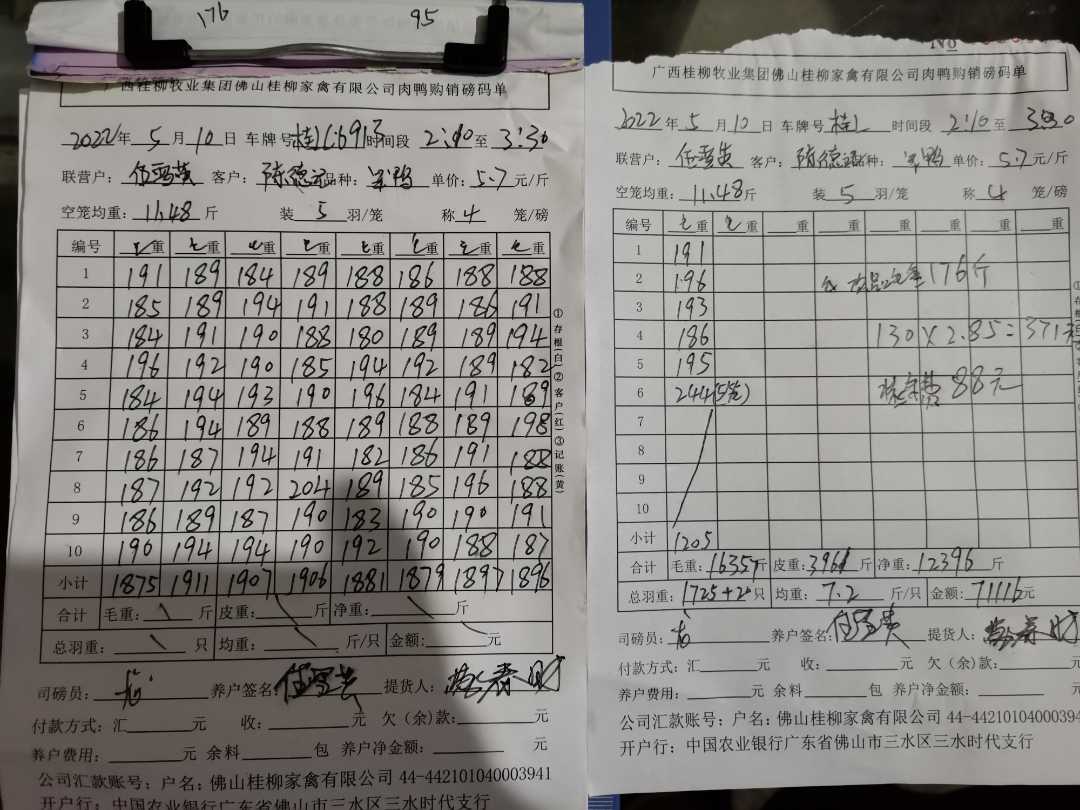 176 95
广西桂柳牧业集团佛山桂柳家禽有限公司肉鸭购销磅码单
2022年 5月10日 车牌号 时间段 2:10至3:30
联营户: 客户: 陈德 品种: 鸭 单价: 5.7元/斤
空笼均重: 11.48斤 装 5 羽/笼 称 4 笼/磅
编号 毛重 毛重 毛重 毛重 毛重 毛重 毛重 毛重
1 191 189 184 189 188 186 188 188
2 185 189 194 191 188 189 186 191
3 184 191 190 188 180 189 189 194
4 196 192 190 185 194 192 189 182
5 184 194 193 190 196 184 191 189
6 186 194 189 188 189 188 189 198
7 186 187 194 191 182 186 191 188
8 187 192 192 204 189 185 196 188
9 186 189 187 190 183 190 190 191
10 190 194 194 190 192 190 188 187
小计 1875 1911 1907 1906 1881 1879 1897 1896
合计 毛重: 斤 皮重: 斤 净重: 斤
总羽重: 只 均重: 斤/只 金额: 元
司磅员: 养户签名: 提货人:
付款方式: 汇 元 收: 元 欠(余)款: 元
养户费用: 元 余料 包 养户净金额: 元
公司汇款账号: 户名: 佛山桂柳家禽有限公司 44-442101040003941
开户行: 中国农业银行广东省佛山市三水区三水时代支行
①存根(白)②客户(红)③记账(黄)
No
广西桂柳牧业集团佛山桂柳家禽有限公司肉鸭购销磅码单
2022年 5月10日 车牌号 桂L 时间段 2:10至 3:30
联营户: 客户: 陈德 品种: 鸭 单价: 5.7元/斤
空笼均重: 11.48斤 装 5 羽/笼 称 4 笼/磅
编号 毛重 毛重 重 重 重 重 重 重
1 191
2 196 176斤
3 193
4 186 130×2.85=371
5 195
6 244(5笼) 88元
7
8
9
10
小计 1205
合计 毛重: 16357斤 皮重: 3961斤 净重: 12396斤
总羽重: 1725+2只 均重: 7.2斤/只 金额: 71116元
司磅员: 养户签名: 提货人:
付款方式: 汇 元 收: 元 欠(余)款: 元
养户费用: 元 余料 包 养户净金额: 元
公司汇款账号: 户名: 佛山桂柳家禽有限公司 44-44210104000394
开户行: 中国农业银行广东省佛山市三水区三水时代支行